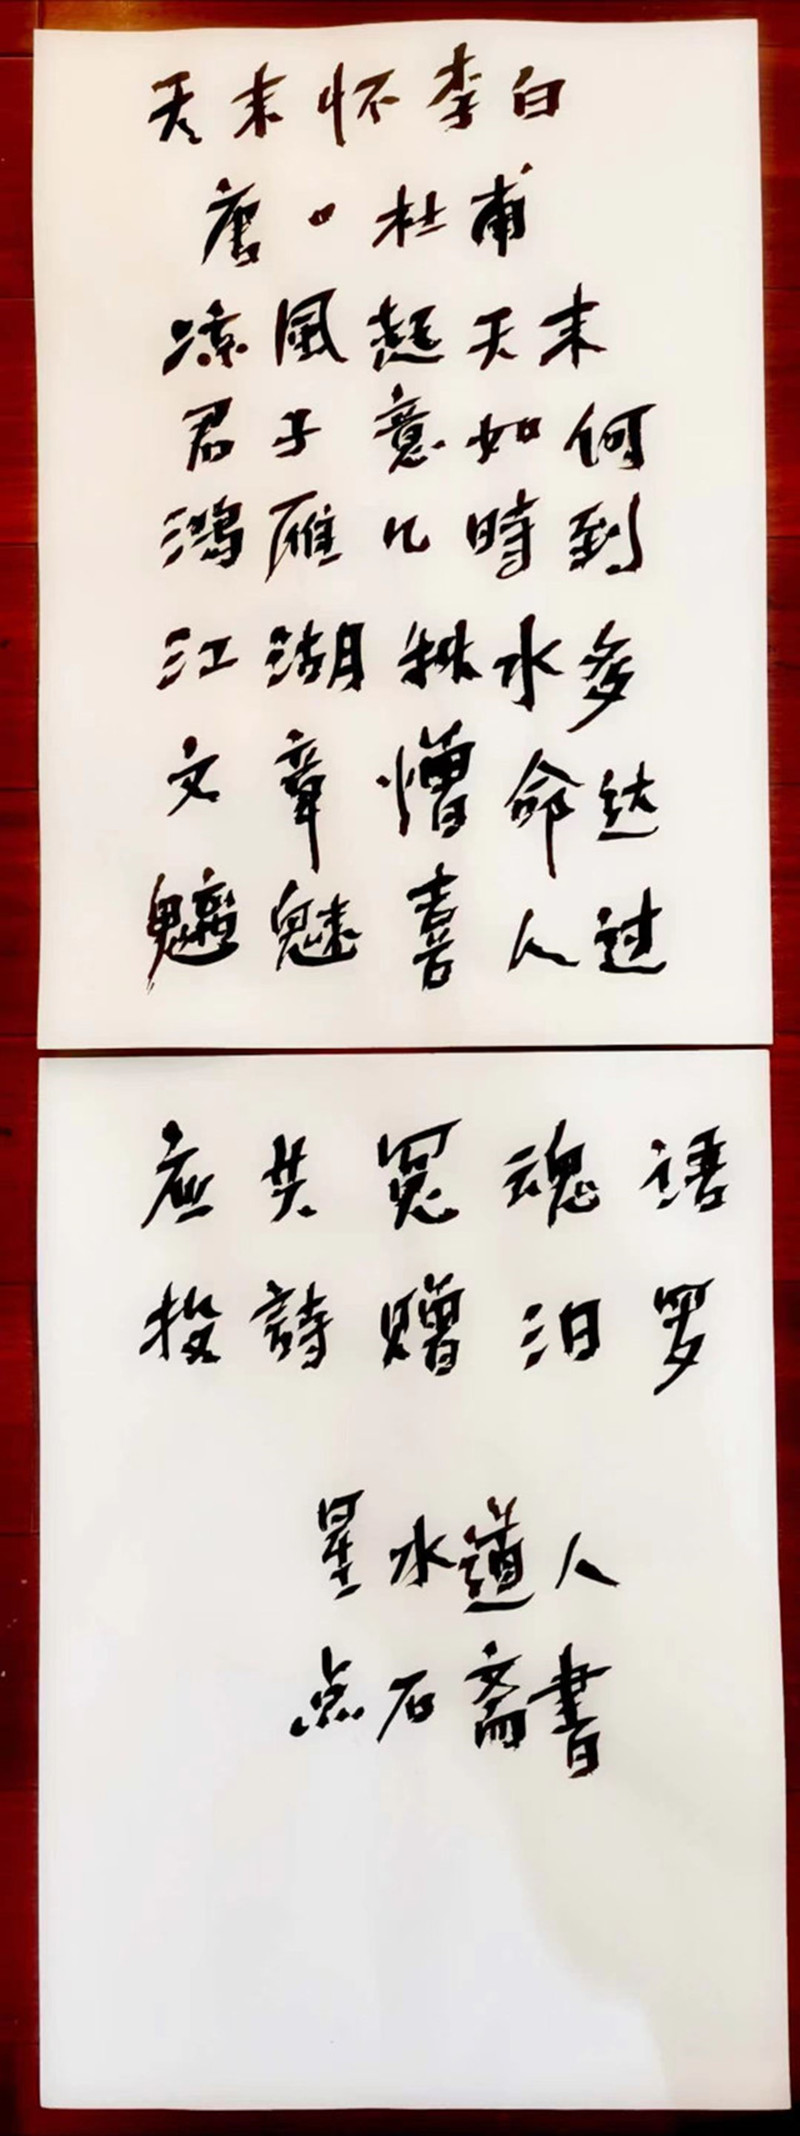 天末怀李白
唐·杜甫
凉風起天末
君子意如何
鴻雁几時到
江湖秋水多
文章憎命达
魑魅喜人过
应共冤魂语
投詩赠汨罗
星水道人
点石斋書